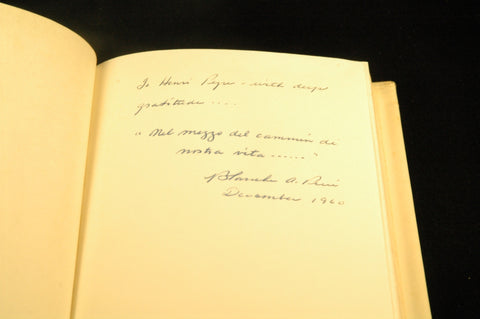 To Henri Peyre - with deep
gratitude ....
"Nel mezzo del cammin di
nostra vita ......"
Blanche A. Price
December 1960